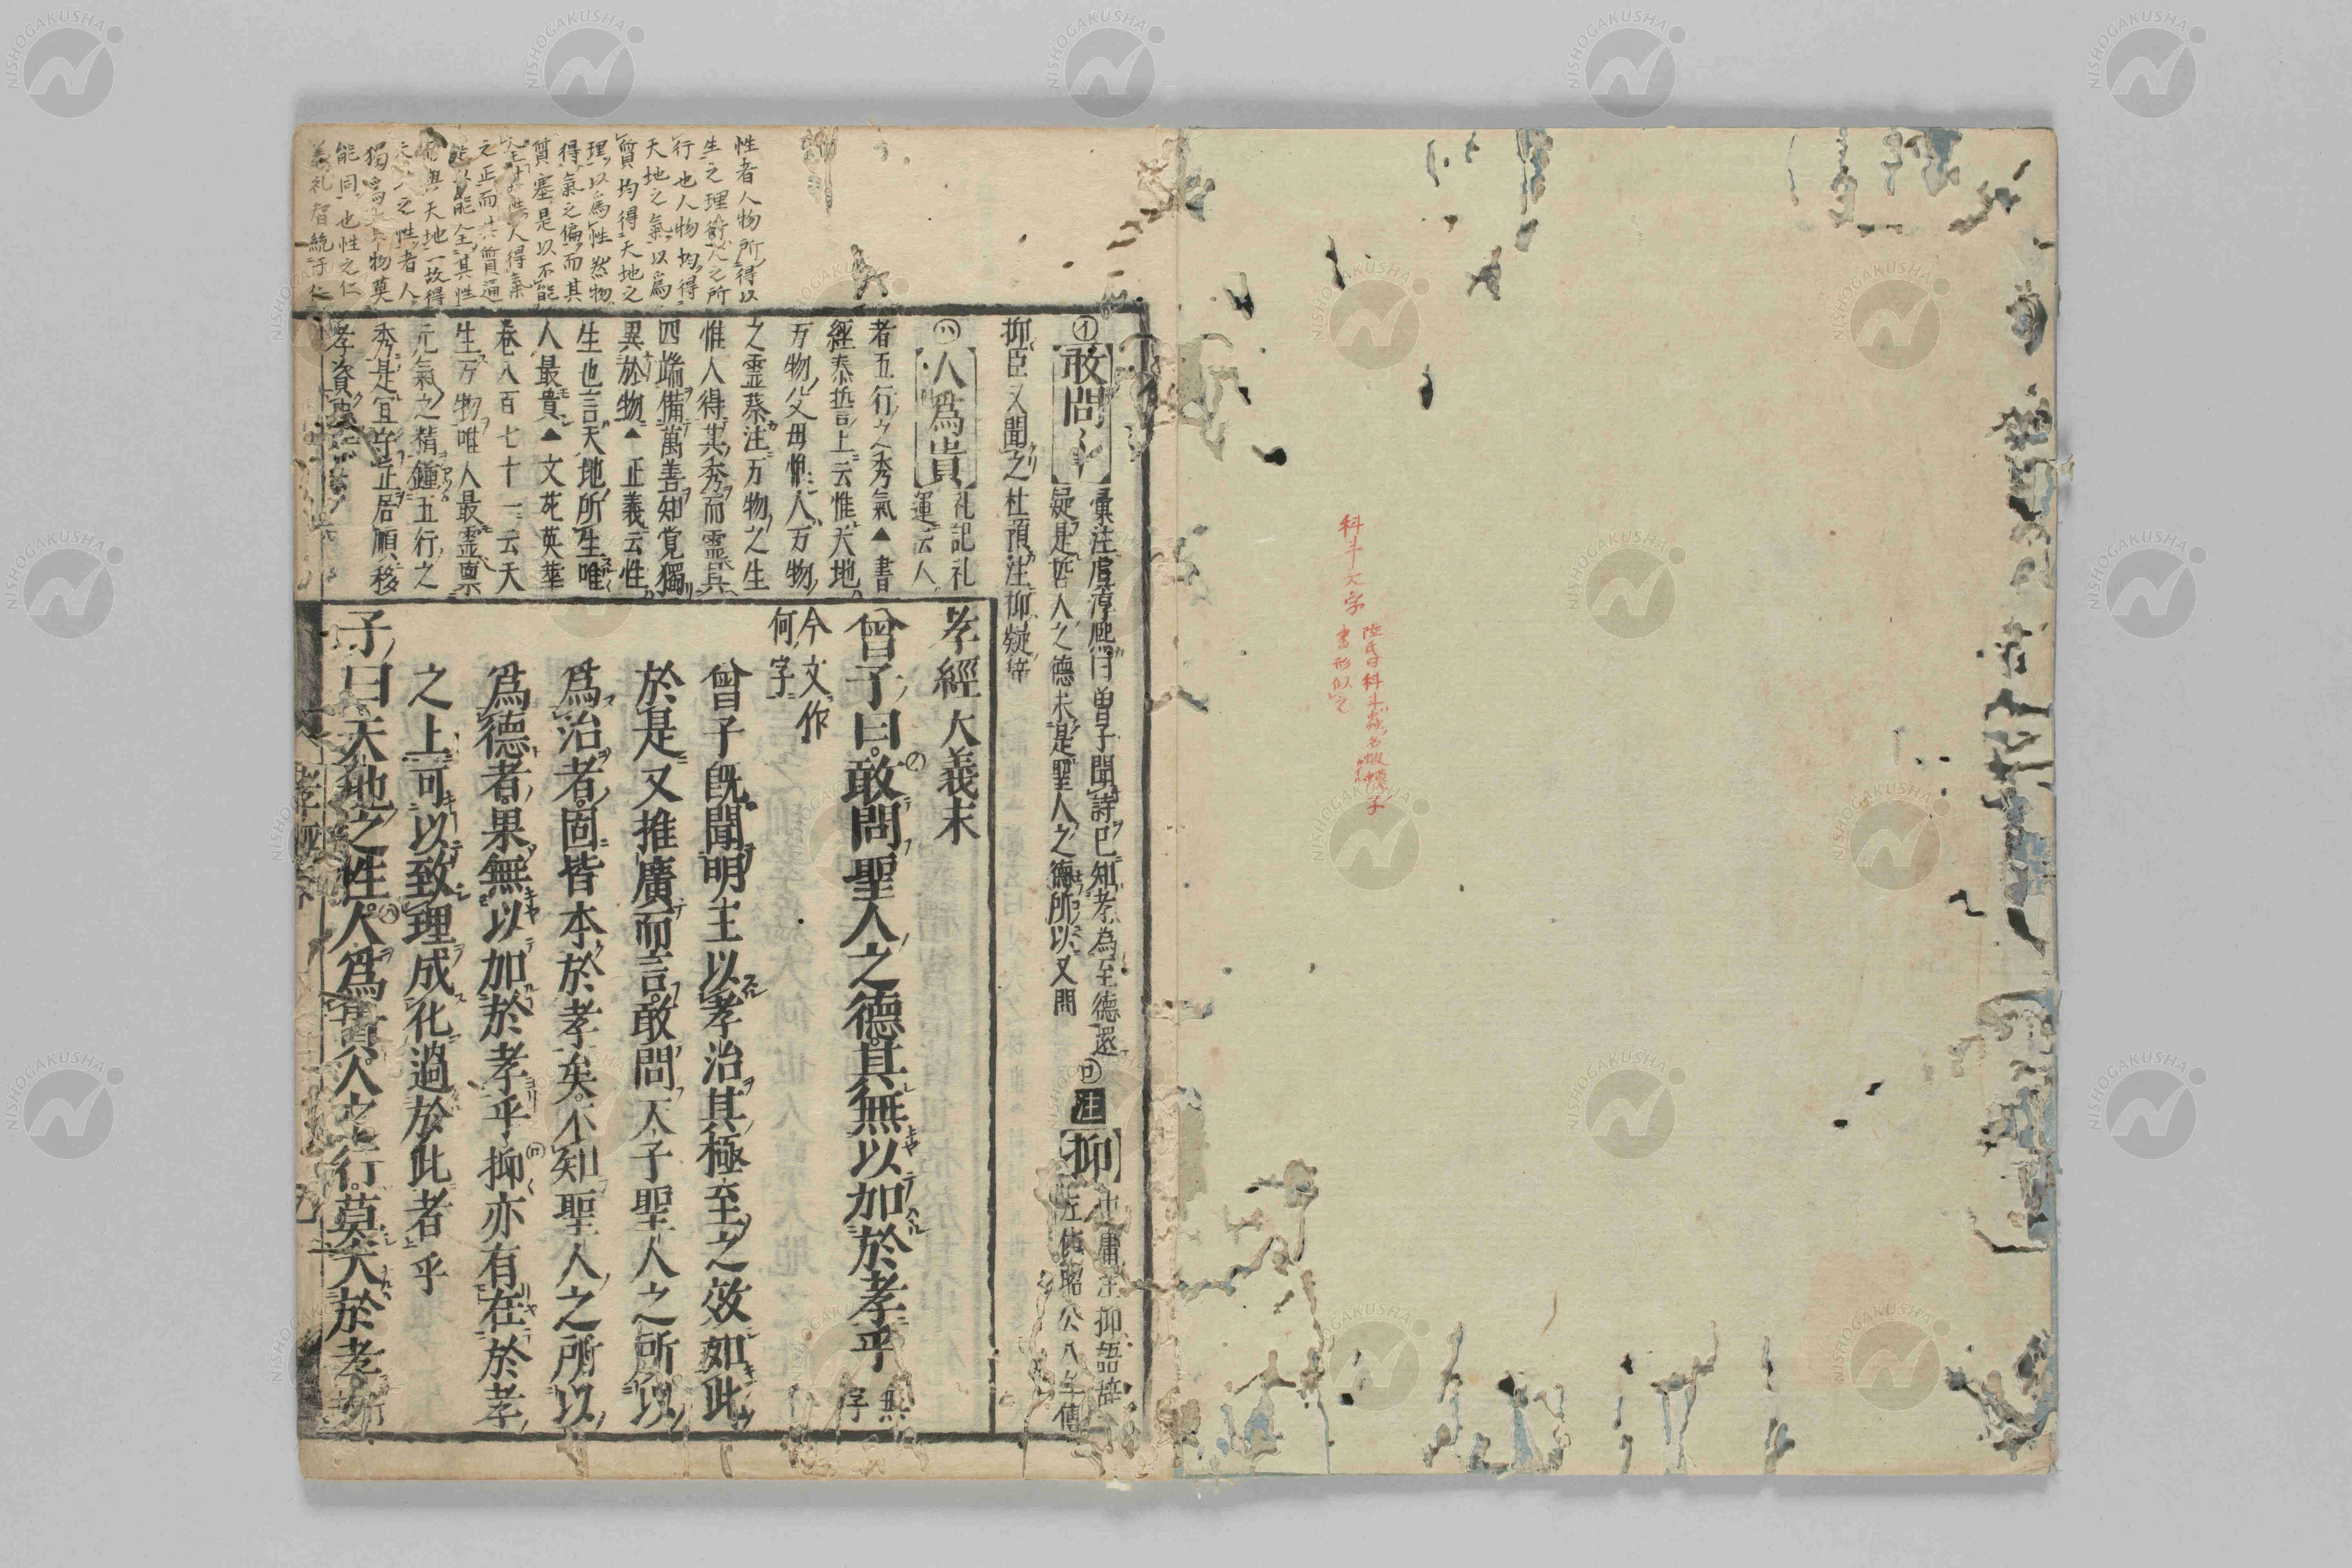 科斗文字
陸氏曰科斗蟲名蝦蟆子
書形似之
敢問
彙注虞淳熙曰曽子聞詩已知孝為至德還
疑是哲人之德未是聖人之德所以又問
注
抑
中庸注抑語辞
左傳昭公八年傳
抑臣又聞之杜預注抑疑辞
人爲貴
礼記礼
運云人
者五行之秀氣▲書
經泰誓上云惟天地
万物父母惟人万物
之霊蔡注万物之生
惟人得其秀而霊具
四端備萬善知覚獨
異於物▲正義云性
生也言天地所生唯
人最貴▲文苑英華
巻八百七十一云天
生万物唯人最霊禀
元氣之精鍾五行之
秀是宜守正居順移
孝資忠
性者人物所得以
生之理
之所
行也人物均得
天地之氣以爲
質均得天地之
理以爲性然物
得氣之偏而其
質塞是以不能
人得氣
之正而其質通
能全其性
與天地一故得
之性者人
獨爲 物莫
能同也性之仁
義礼智統于仁
孝經大義末
曾子曰敢問聖人之德其無以加於孝乎
無
字
今文作
何字
曾子既聞明主以孝治其極至之效如此
於是又推廣而言敢問天子聖人之所以
爲治者固皆本於孝矣不知聖人之所以
爲德者果無以加於孝乎抑亦有在於孝
之上可以致理成化過於此者乎
子曰天地之性人爲貴人之行莫大於孝
孝經